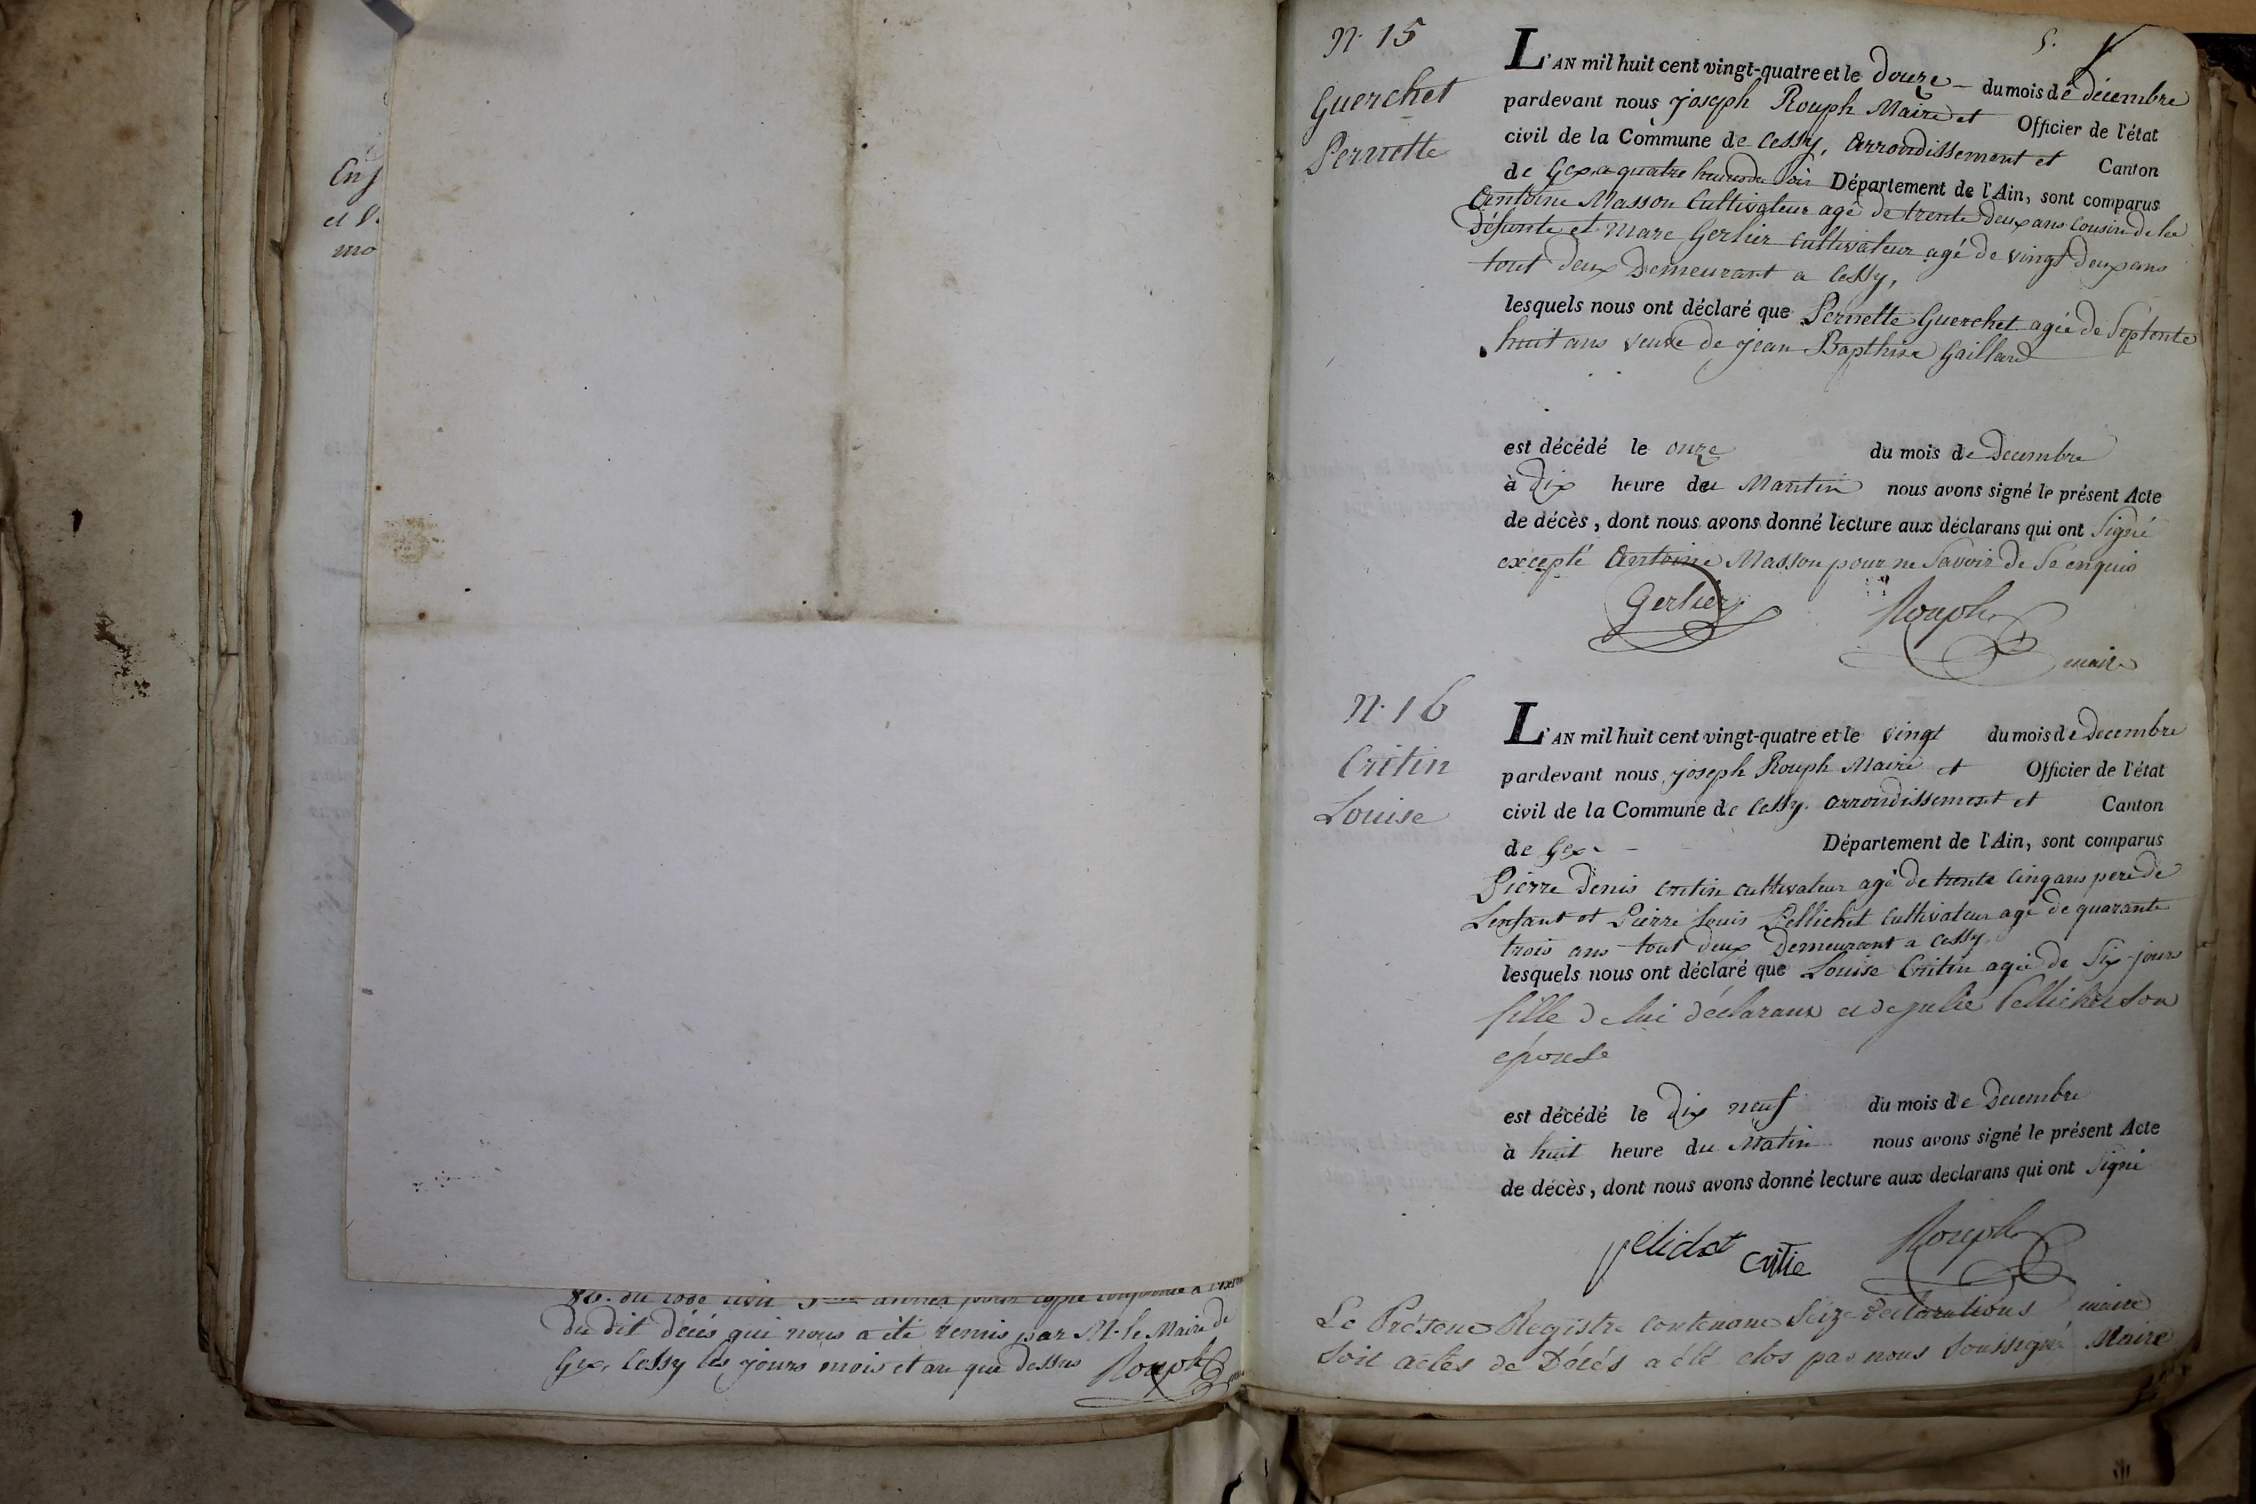 et
mo
86. du code civil
du dit décès qui nous a été remis par M. le Maire de
Gex, Cessy les jours mois et an que dessus Rouph
5.
N. 15
Guerchet
Pernette
L'AN mil huit cent vingt-quatre et le douze du mois de décembre
pardevant nous joseph Rouph Maire et Officier de l'état
civil de la Commune de Cessy, arrondissement et Canton
de Gex a quatre heures du Soir Département de l'Ain, sont comparus
Antoine Masson Cultivateur agé de trente deux ans Cousin de la
Défunte et Marc Gerlier cultivateur agé de vingt deux ans
tout deux Demeurant a Cessy,
lesquels nous ont déclaré que Pernette Guerchet agée de Septente
huit ans veuve de jean Bapthise Gaillard
est décédé le onze du mois de Decembre
à Dix heure du Mantin nous avons signé le présent Acte
de décès, dont nous avons donné lecture aux déclarans qui ont Signé
excepté Antoine Masson pour ne Savoir de Se enquis
Gerlier Rouph
maire
N. 16
Critin
Louise
L'AN mil huit cent vingt-quatre et le vingt du mois de Decembre
pardevant nous joseph Rouph Maire et Officier de l'état
civil de la Commune de Cessy. arrondissement et Canton
de Gex - Département de l'Ain, sont comparus
Pierre Denis Critin cultivateur agé de trente cinq ans pere de
Lenfant et Pierre Louis Pellichet cultivateur agé de quarante
trois ans tout deux Demeurant a Cessy
lesquels nous ont déclaré que Louise Critin agée de Six jours
fille de lui déclarant et de julie Pellichet Son
épouse
est décédé le Dix neuf du mois de Decembre
à huit heure du Matin nous avons signé le présent Acte
de décès, dont nous avons donné lecture aux declarans qui ont Signé
pelichet Critie Rouph
maire
Le Présent Registre contenant Seize déclarations
Soit actes de Décés a été clos par nous Soussigné Maire